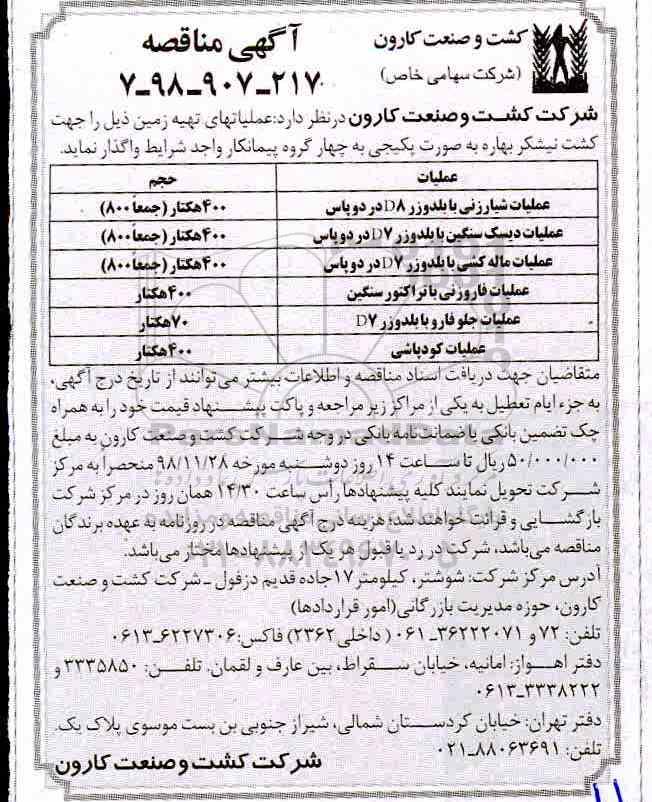 کشت و صنعت کارون
(شرکت سهامی خاص)
آگهی مناقصه
۷-۹۸-۹۰۷-۲۱۷
شرکت کشت و صنعت کارون درنظر دارد: عملیاتهای تهیه زمین ذیل را جهت
کشت نیشکر بهاره به صورت پکیجی به چهار گروه پیمانکار واجد شرایط واگذار نماید.
عملیات حجم
عملیات شیارزنی با بلدوزر D۸ در دو پاس ۴۰۰هکتار (جمعاً ۸۰۰)
عملیات دیسک سنگین با بلدوزر D۷ در دو پاس ۴۰۰هکتار (جمعاً ۸۰۰)
عملیات ماله کشی با بلدوزر D۷ در دو پاس ۴۰۰هکتار (جمعاً ۸۰۰)
عملیات فاروزنی با تراکتور سنگین ۴۰۰هکتار
عملیات جلو فارو با بلدوزر D۷ ۷۰هکتار
عملیات کودپاشی ۴۰۰هکتار
متقاضیان جهت دریافت اسناد مناقصه و اطلاعات بیشتر می‌توانند از تاریخ درج آگهی،
به جزء ایام تعطیل به یکی از مراکز زیر مراجعه و پاکت پیشنهاد قیمت خود را به همراه
چک تضمین بانکی یا ضمانت‌نامه بانکی در وجه شرکت کشت و صنعت کارون به مبلغ
۵۰/۰۰۰/۰۰۰ ریال تا ساعت ۱۴ روز دوشنبه مورخه ۹۸/۱۱/۲۸ منحصراً به مرکز
شرکت تحویل نمایند کلیه پیشنهادها رأس ساعت ۱۴/۳۰ همان روز در مرکز شرکت
بازگشایی و قرائت خواهند شد؛ هزینه درج آگهی مناقصه در روزنامه به عهده برندگان
مناقصه می‌باشد، شرکت در رد یا قبول هر یک از پیشنهادها مختار می‌باشد.
آدرس مرکز شرکت: شوشتر، کیلومتر ۱۷ جاده قدیم دزفول - شرکت کشت و صنعت
کارون، حوزه مدیریت بازرگانی (امور قراردادها)
تلفن: ۷۲ و ۳۶۲۲۲۰۷۱-۰۶۱ (داخلی ۲۳۶۲) فاکس: ۶۲۲۷۳۰۶-۰۶۱۳
دفتر اهواز: امانیه، خیابان سقراط، بین عارف و لقمان. تلفن: ۳۳۳۵۸۵۰ و
۳۳۳۸۲۲۲-۰۶۱۳
دفتر تهران: خیابان کردستان شمالی، شیراز جنوبی بن بست موسوی پلاک یک.
تلفن: ۸۸۰۶۳۶۹۱-۰۲۱
شرکت کشت و صنعت کارون